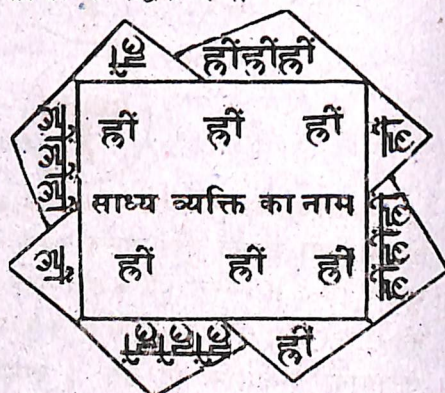 ह्रीं ह्रींह्रींह्रीं
ह्रीं ह्रीं ह्रीं
ह्रीं
ह्रींह्रींह्रीं
साध्य व्यक्ति का नाम
ह्रींह्रींह्रीं
ह्रीं
ह्रीं ह्रीं ह्रीं
ह्रींह्रींह्रीं ह्रीं